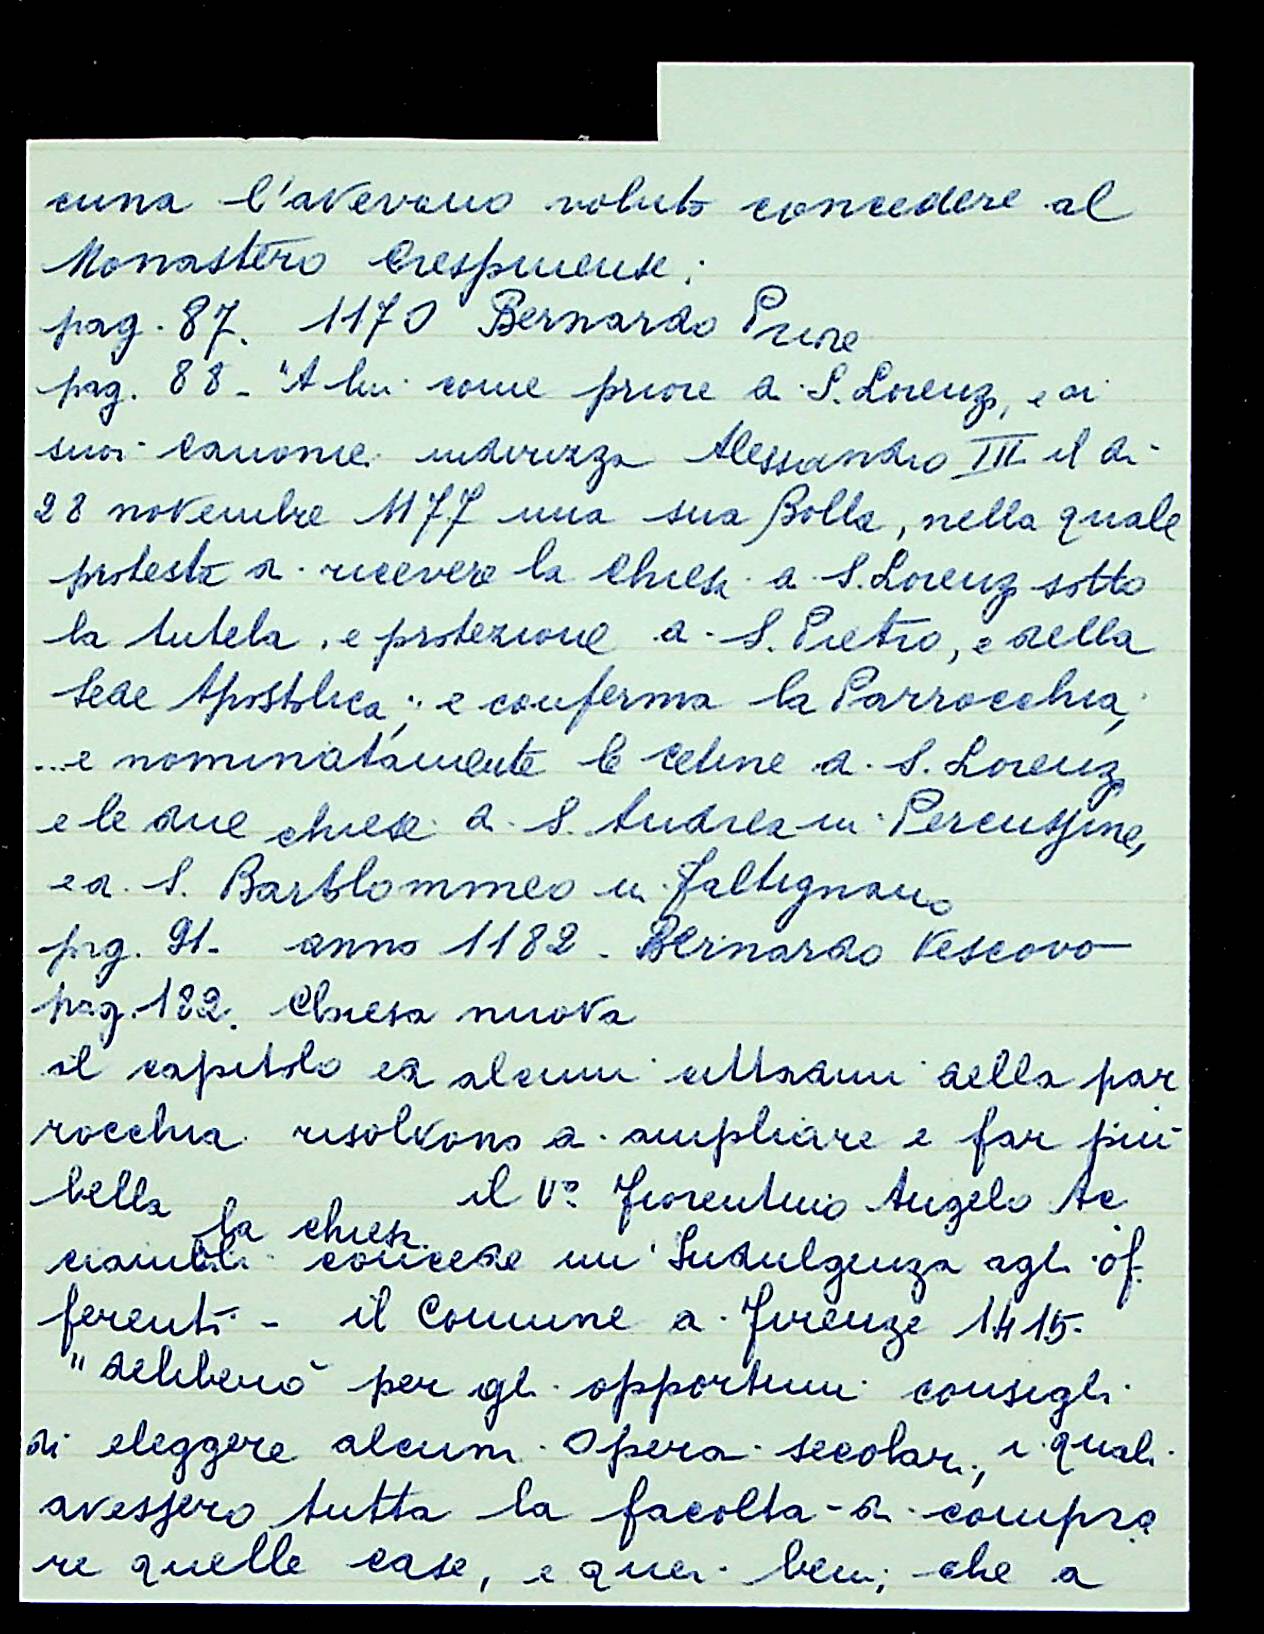 cuna l'avevano voluto concedere al
Monastero Crespinense;
pag. 87. 1170 Bernardo Priore
pag. 88 - "A lui come priore di S. Lorenzo, e ai
suoi canonici indirizza Alessandro III il dì
28 novembre 1177 una sua Bolla, nella quale
protesta di ricevere la Chiesa di S. Lorenzo sotto
la tutela, e protezione di S. Pietro, e della
Sede Apostolica; e conferma la Parrocchia,
... e nominatamente le celine di S. Lorenzo
e le due chiese di S. Andrea in Percussina,
e di S. Bartolommeo in Faltignano
pag. 91. anno 1182 - Bernardo Vescovo
pag. 182. Chiesa nuova
il capitolo ed alcuni cittadini della par
rocchia risolvono di ampliare e far più
bella la chiesa. il Vº Fiorentino Angelo Ac
ciaiuoli concede un' Indulgenza agli of
ferenti - il Comune di Firenze 1415.
"deliberò per gli opportuni consigli
di eleggere alcuni Operai secolari, i quali
avessero tutta la facoltà di compra
re quelle case, e quei beni, che a